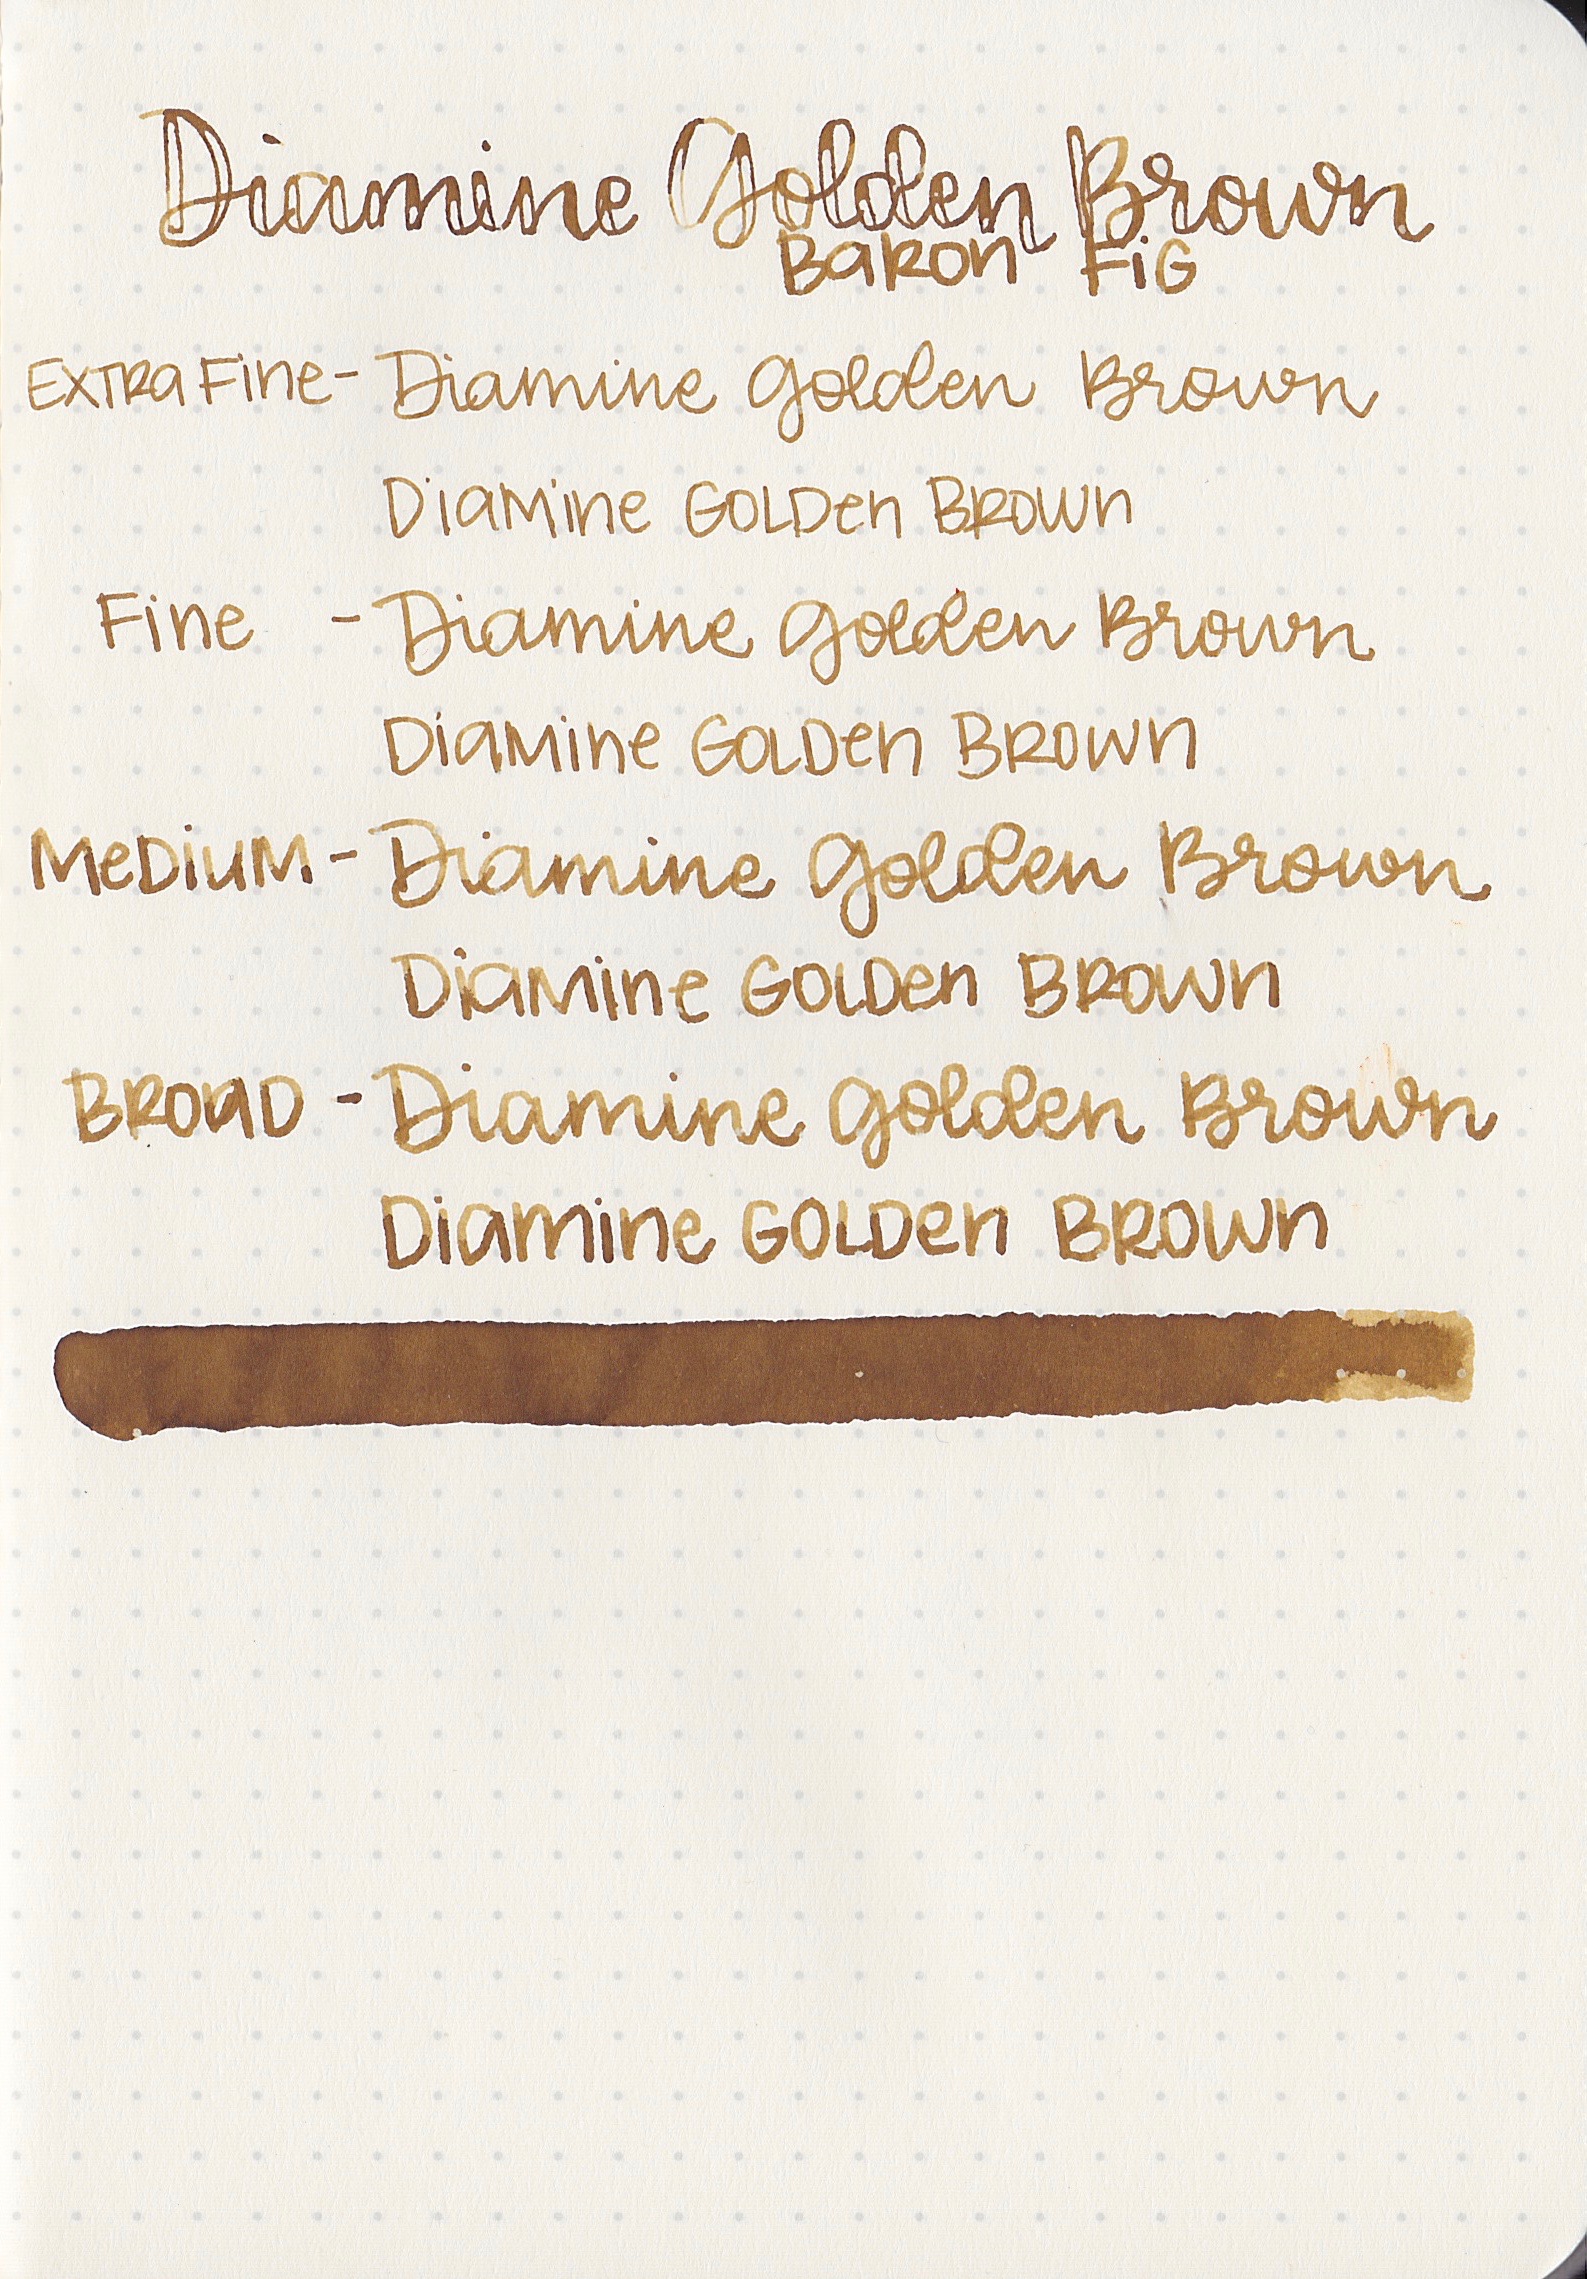 Diamine Golden Brown
Baron Fig
Extra Fine - Diamine Golden Brown
Diamine Golden Brown
Fine - Diamine Golden Brown
Diamine Golden Brown
Medium - Diamine Golden Brown
Diamine Golden Brown
Broad - Diamine Golden Brown
Diamine Golden Brown